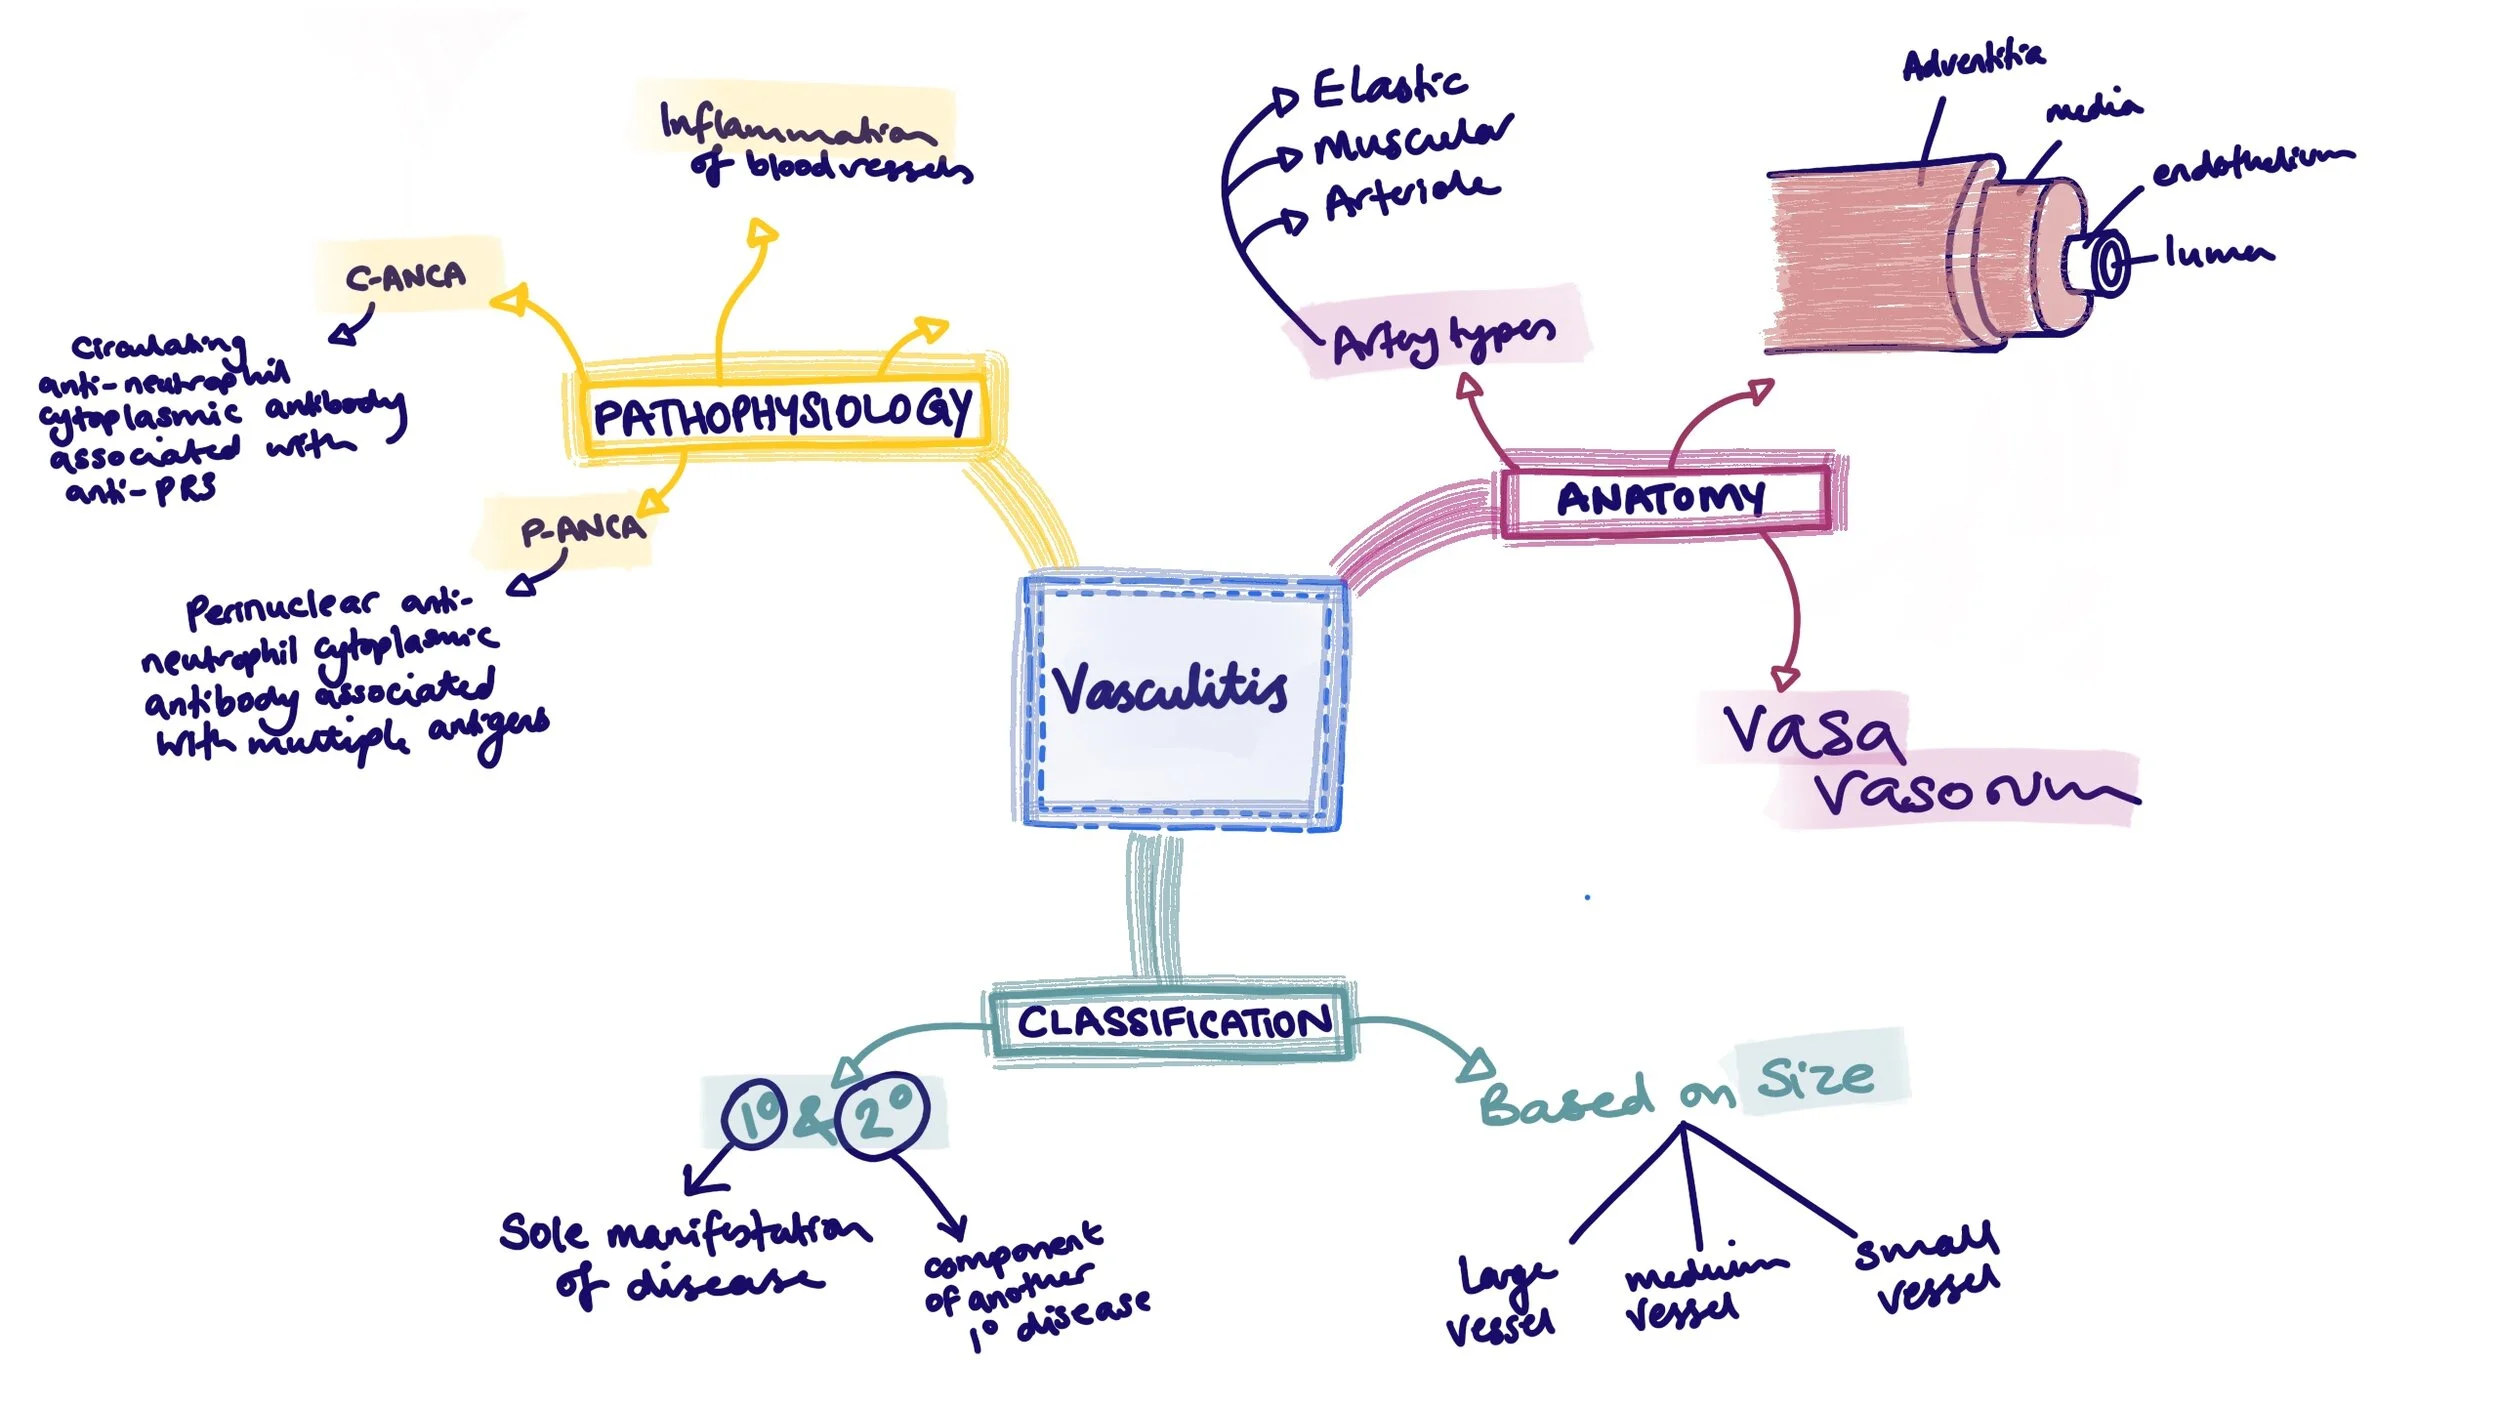 Inflammation
of blood vessels
C-ANCA
Circulating
anti-neutrophil
cytoplasmic antibody
associated with
anti-PR3
PATHOPHYSIOLOGY
P-ANCA
Perinuclear anti-
neutrophil cytoplasmic
antibody associated
with multiple antigens
Elastic
Muscular
Arteriole
Artery types
Adventitia
media
endothelium
lumen
ANATOMY
Vasa
Vasorum
Vasculitis
CLASSIFICATION
1° & 2°
Sole manifestation
of disease
component
of another
1° disease
Based on Size
Large
vessel
medium
vessel
small
vessel